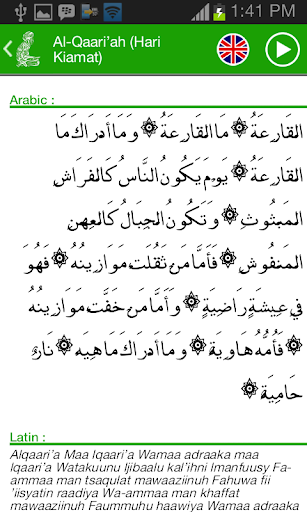 1:41 PM
Al-Qaari'ah (Hari
Kiamat)
Arabic :
القَارِعَةُ ۞ مَا القَارِعَةُ ۞ وَمَا أَدْرَاكَ مَا
القَارِعَةُ ۞ يَوْمَ يَكُونُ النَّاسُ كَالفَرَاشِ
المَبْثُوثِ ۞ وَتَكُونُ الجِبَالُ كَالعِهْنِ
المَنْفُوشِ ۞ فَأَمَّا مَن ثَقُلَتْ مَوَازِينُهُ ۞ فَهُوَ
فِي عِيشَةٍ رَاضِيَةٍ ۞ وَأَمَّا مَنْ خَفَّتْ مَوَازِينُهُ
۞ فَأُمُّهُ هَاوِيَةٌ ۞ وَمَا أَدْرَاكَ مَا هِيَهْ ۞ نَارٌ
حَامِيَةٌ ۞
Latin :
Alqaari'a Maa lqaari'a Wamaa adraaka maa
lqaari'a Watakuunu ljibaalu kal'ihni lmanfuusy Fa-
ammaa man tsaqulat mawaaziinuh Fahuwa fii
'iisyatin raadiya Wa-ammaa man khaffat
mawaaziinuh Faummuhu haawiya Wamaa adraaka